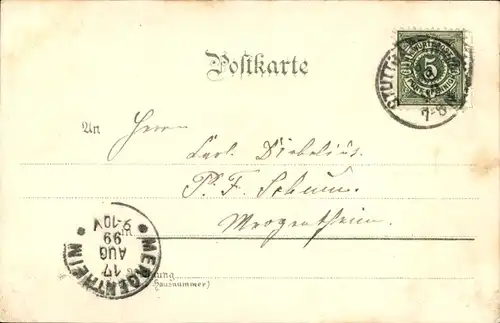 Postkarte
STUTTG
5
7-8
An
Herrn
Carl Dibelius.
P. F.
Mergentheim.
MERGENTHEIM
17
AUG
99
9-10V
in
ung
Hausnummer)